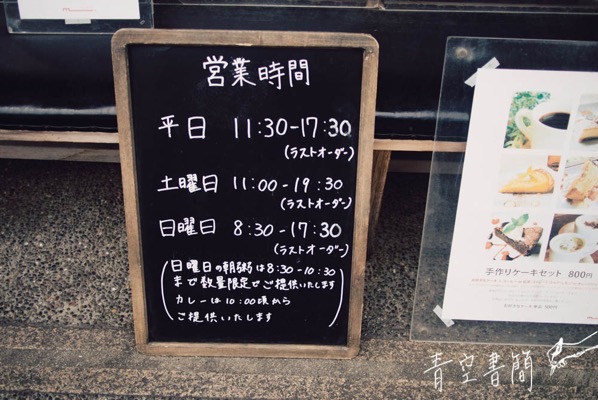 営業時間
平日 11:30-17:30
(ラストオーダー)
土曜日 11:00-19:30
(ラストオーダー)
日曜日 8:30-17:30
(ラストオーダー)
(日曜日の朝粥は8:30-10:30
まで数量限定でご提供いたします
カレーは10:00頃から
ご提供いたします)
手作りケーキセット 800円
青空書簡